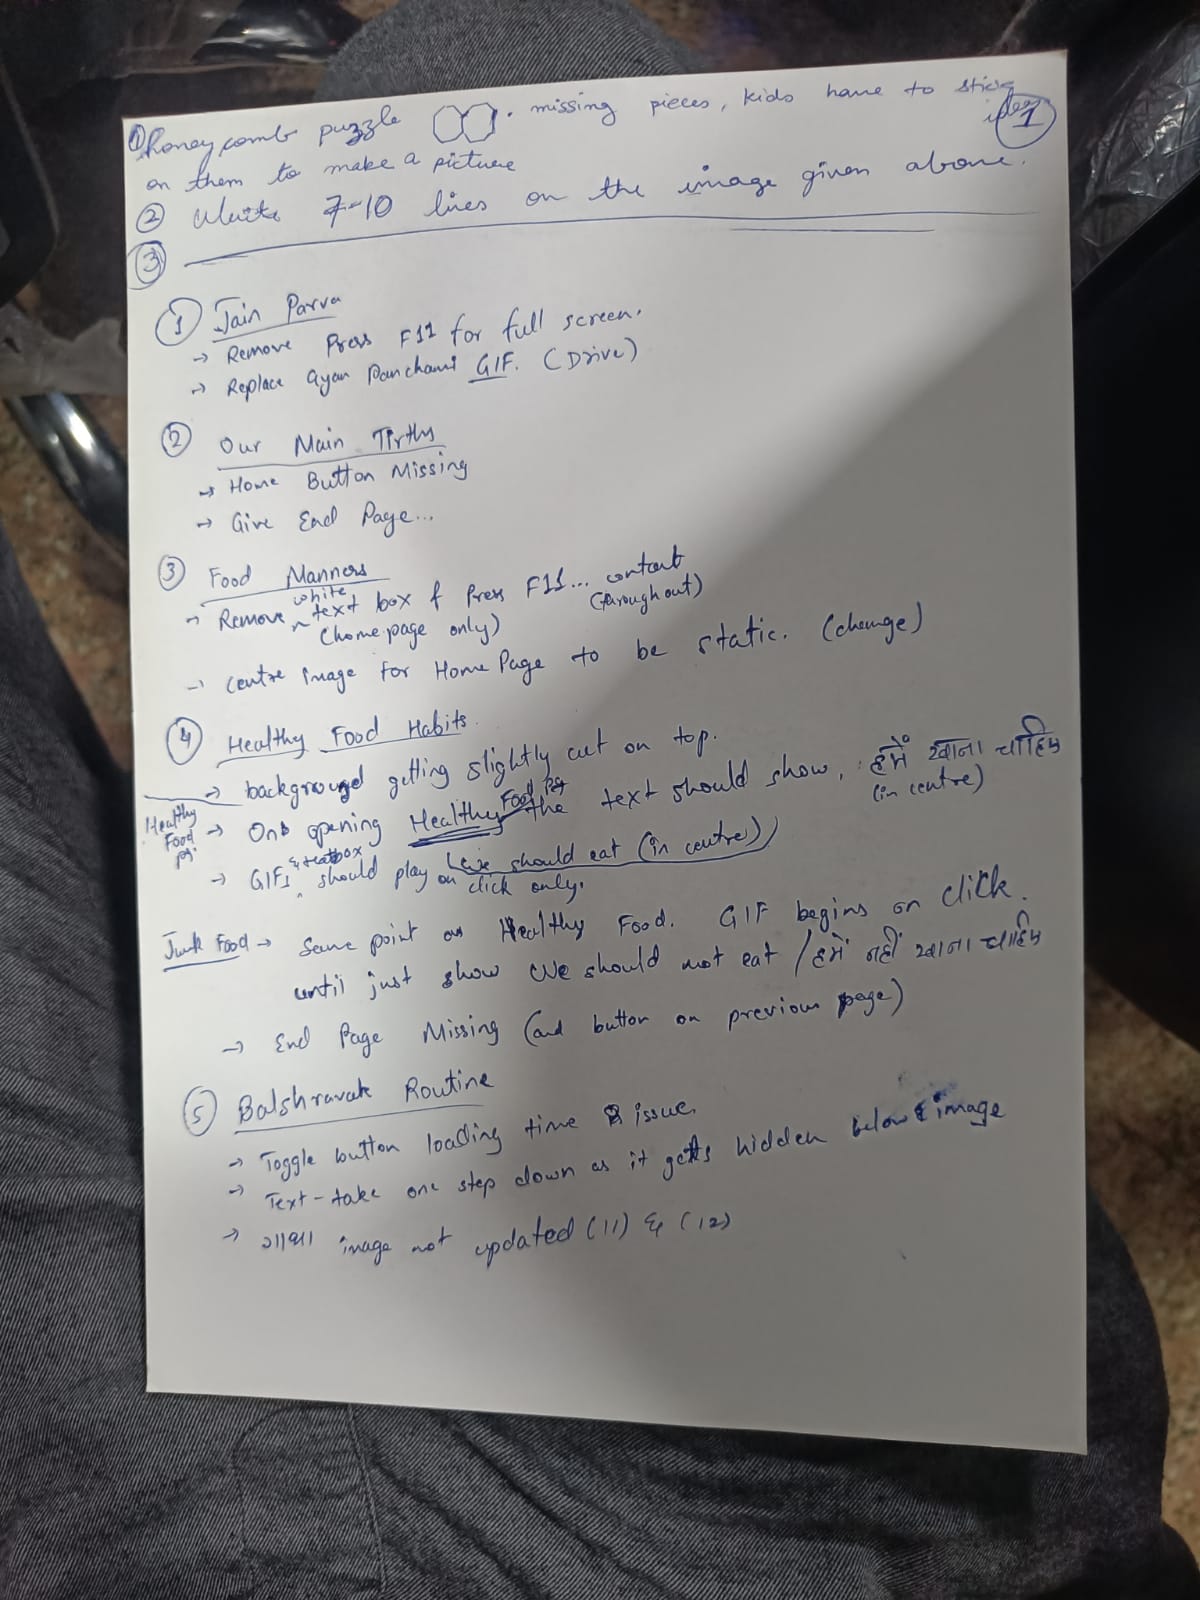 ① honeycomb puzzle . missing pieces, kids have to stick
1
on them to make a picture
② Write 7-10 lines on the image given above.
③
① Jain Parva
→ Remove Press F11 for full screen.
→ Replace Gyan Panchami GIF. (Drive)
② Our Main Tirths
→ Home Button Missing
→ Give End Page...
③ Food Manners
→ Remove white text box & Press F11... content
(home page only) (throughout)
→ centre image for Home Page to be static. (change)
④ Healthy Food Habits.
→ background getting slightly cut on top.
Healthy Food pg. → On opening Healthy Food Pg the text should show, हमें खाना चाहिए
(in centre)
We should eat (in centre)
→ GIFs & textbox should play on click only.
Junk Food → Same point as Healthy Food. GIF begins on click.
until just show We should not eat / हमें नहीं खाना चाहिए
→ End Page Missing (and button on previous page)
⑤ Balshravak Routine
→ Toggle button loading time issue.
→ Text - take one step down as it gets hidden below image
→ गाथा image not updated (11) & (12)